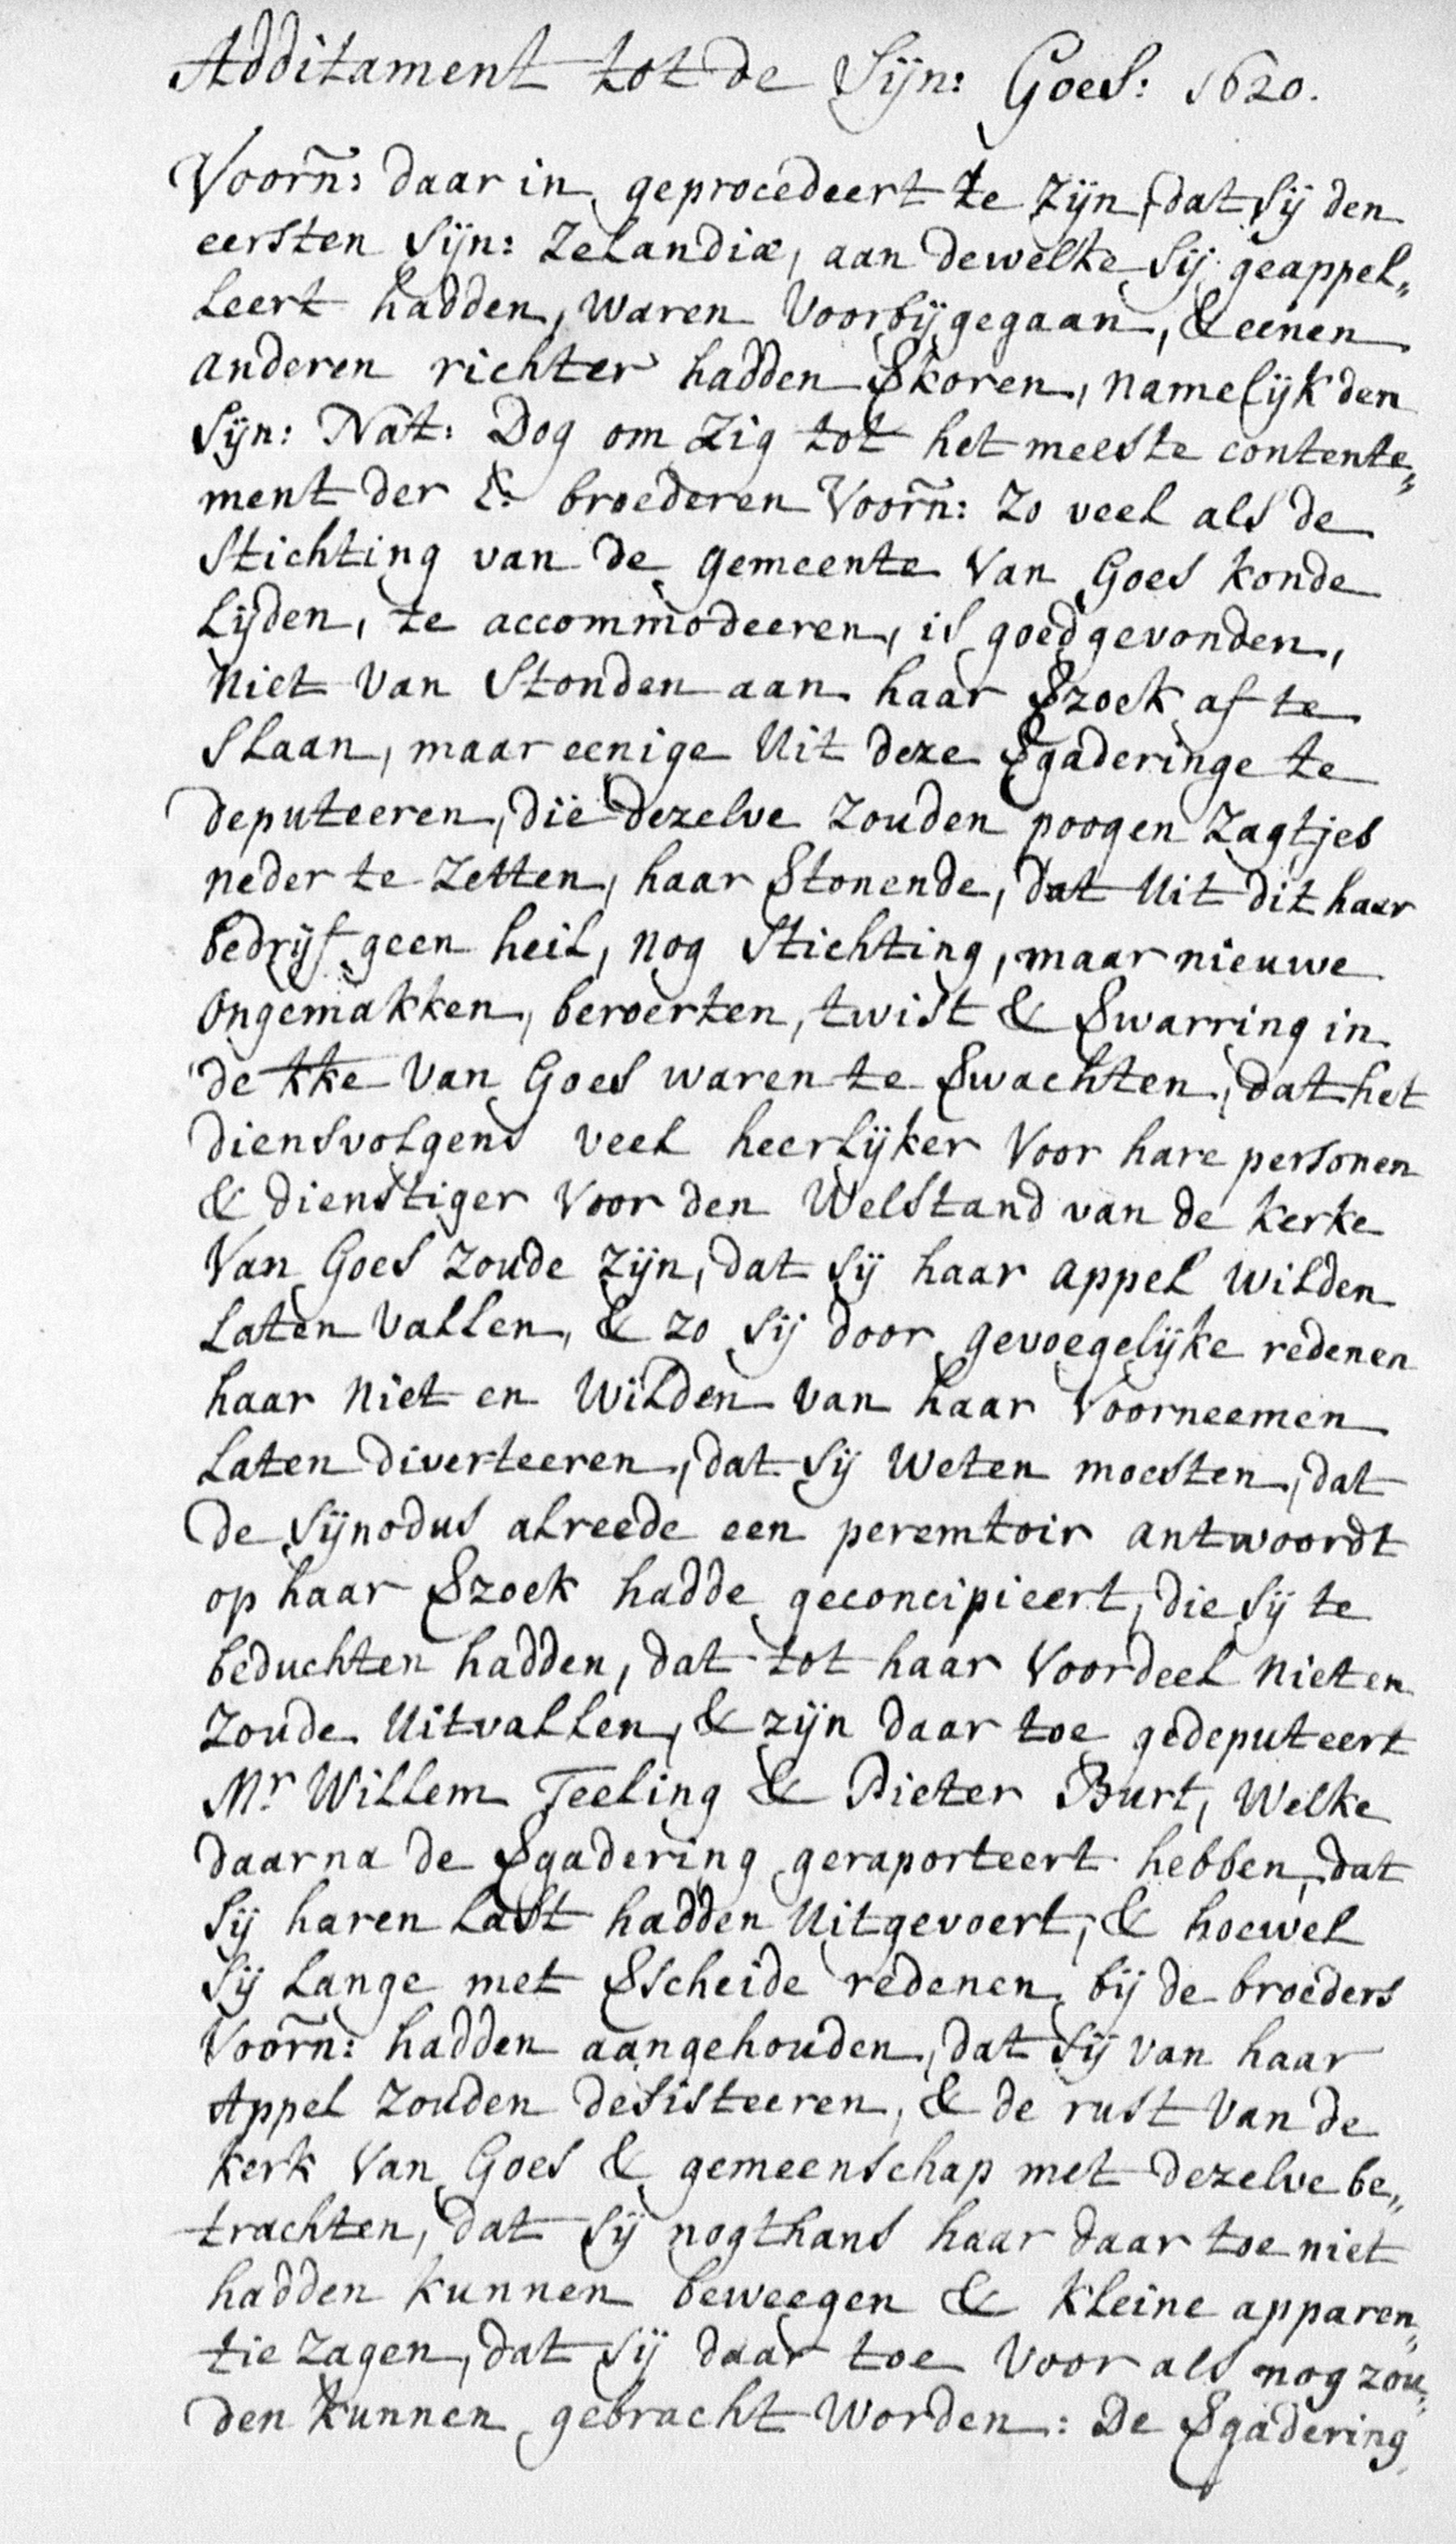 Additament tot de Sijn: Goes: 1620.
Voorñ: daar in geprocedeert te zijn, dat sij den
eersten Sijn: Zelandiæ, aan dewelke sij geappel„
leert hadden, waren voorbijgegaan, & eenen
anderen richter hadden §koren, namelijk den
Sijn: Nat: Dog om zig tot het meeste contente„
ment der E: broederen Voorñ: zo veel als de
Stichting van de gemeente van Goes konde
Lijden, te accommodeeren, is goedgevonden,
niet van Stonden aan haar §zoek af te
Slaan, maar eenige Uit deze §gaderinge te
deputeeren, die dezelve zouden poogen zagtjes
neder te zetten, haar §tonende, dat Uit dit haar
bedrijf geen heil, nog Stichting, maar nieuwe
ongemakken, beroerten, twist & §warring in
de kke van Goes waren te §wachten, dat het
diensvolgens veel heerlijker voor hare personen
& dienstiger voor den Welstand van de kerke
Van Goes zoude zijn, dat sij haar appel wilden
Laten vallen, & zo sij door gevoegelijke redenen
haar niet en wilden van haar voorneemen
Laten diverteeren, dat sij weten moesten, dat
de Sijnodus alreede een peremtoir antwoordt
op haar §zoek hadde geconcipieert, die sij te
beduchten hadden, dat tot haar voordeel niet en
zoude Uitvallen, & zijn daar toe gedeputeert
Mr Willem Teeling & Pieter Burt, Welke
daarna de §gadering geraporteert hebben, dat
Sij haren Last hadden Uitgevoert, & hoewel
Sij Lange met §scheide redenen bij de broeders
Voorñ: hadden aangehouden, dat sij van haar
Appel zouden desisteeren, & de rust van de
kerk van Goes & gemeenschap met dezelve be„
trachten, dat sij nogthans haar daar toe niet
hadden kunnen beweegen & kleine apparen„
tie zagen, dat sij daar toe voor als nog zou„
den kunnen gebracht worden: De §gadering